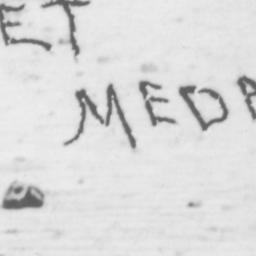 ET
MED